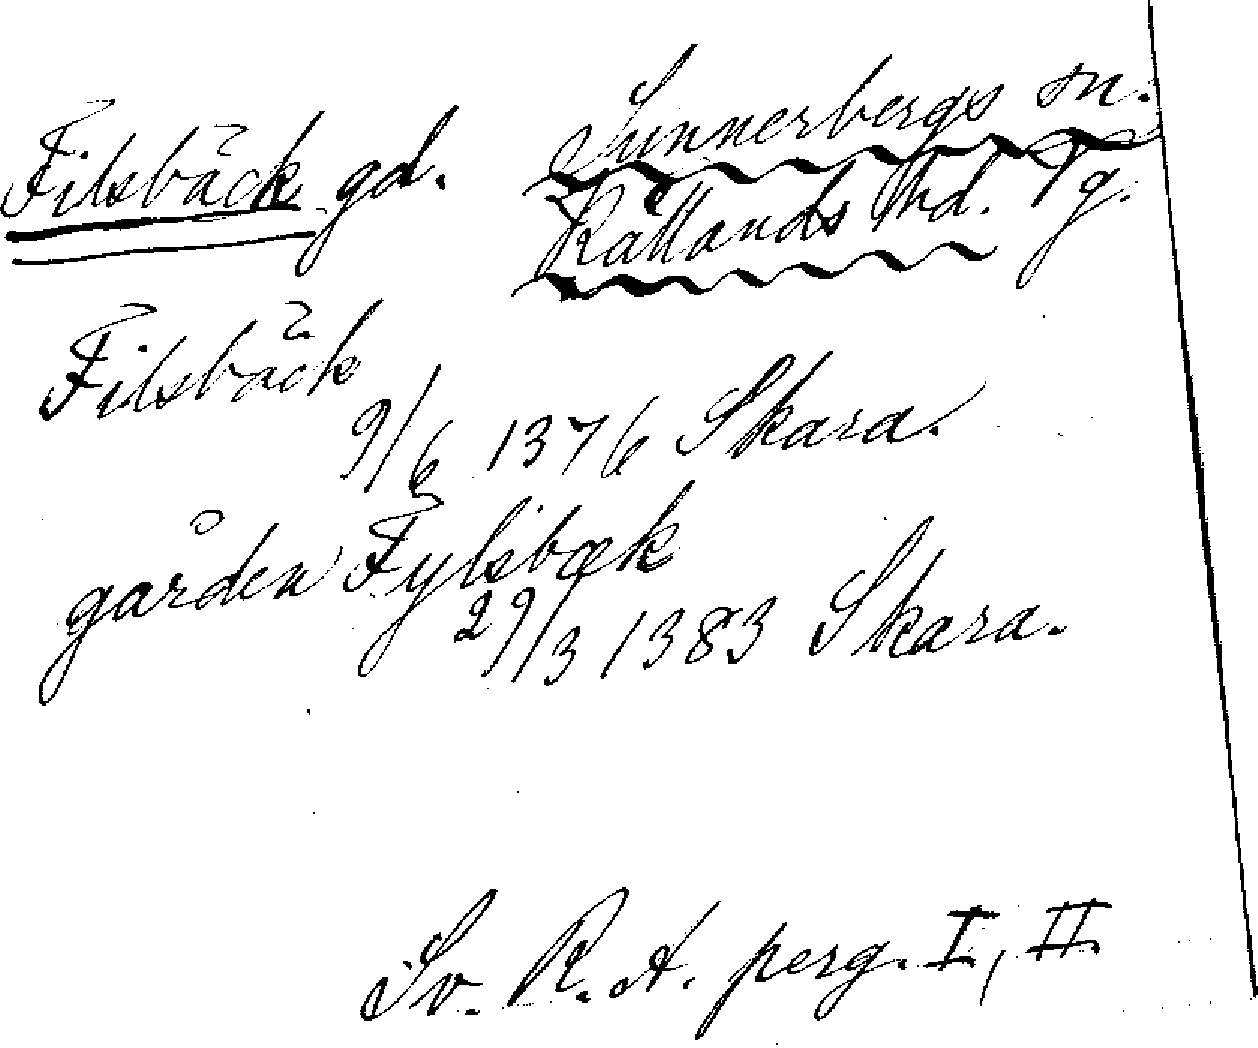 Filsbäck gd. Sunnerbergs sn.
Kållands hd. Vg.
Filsbäck
9/6 1376 Skara.
gården Fylsbæk
29/3 1383 Skara.
Sv. R. A. perg. I, II